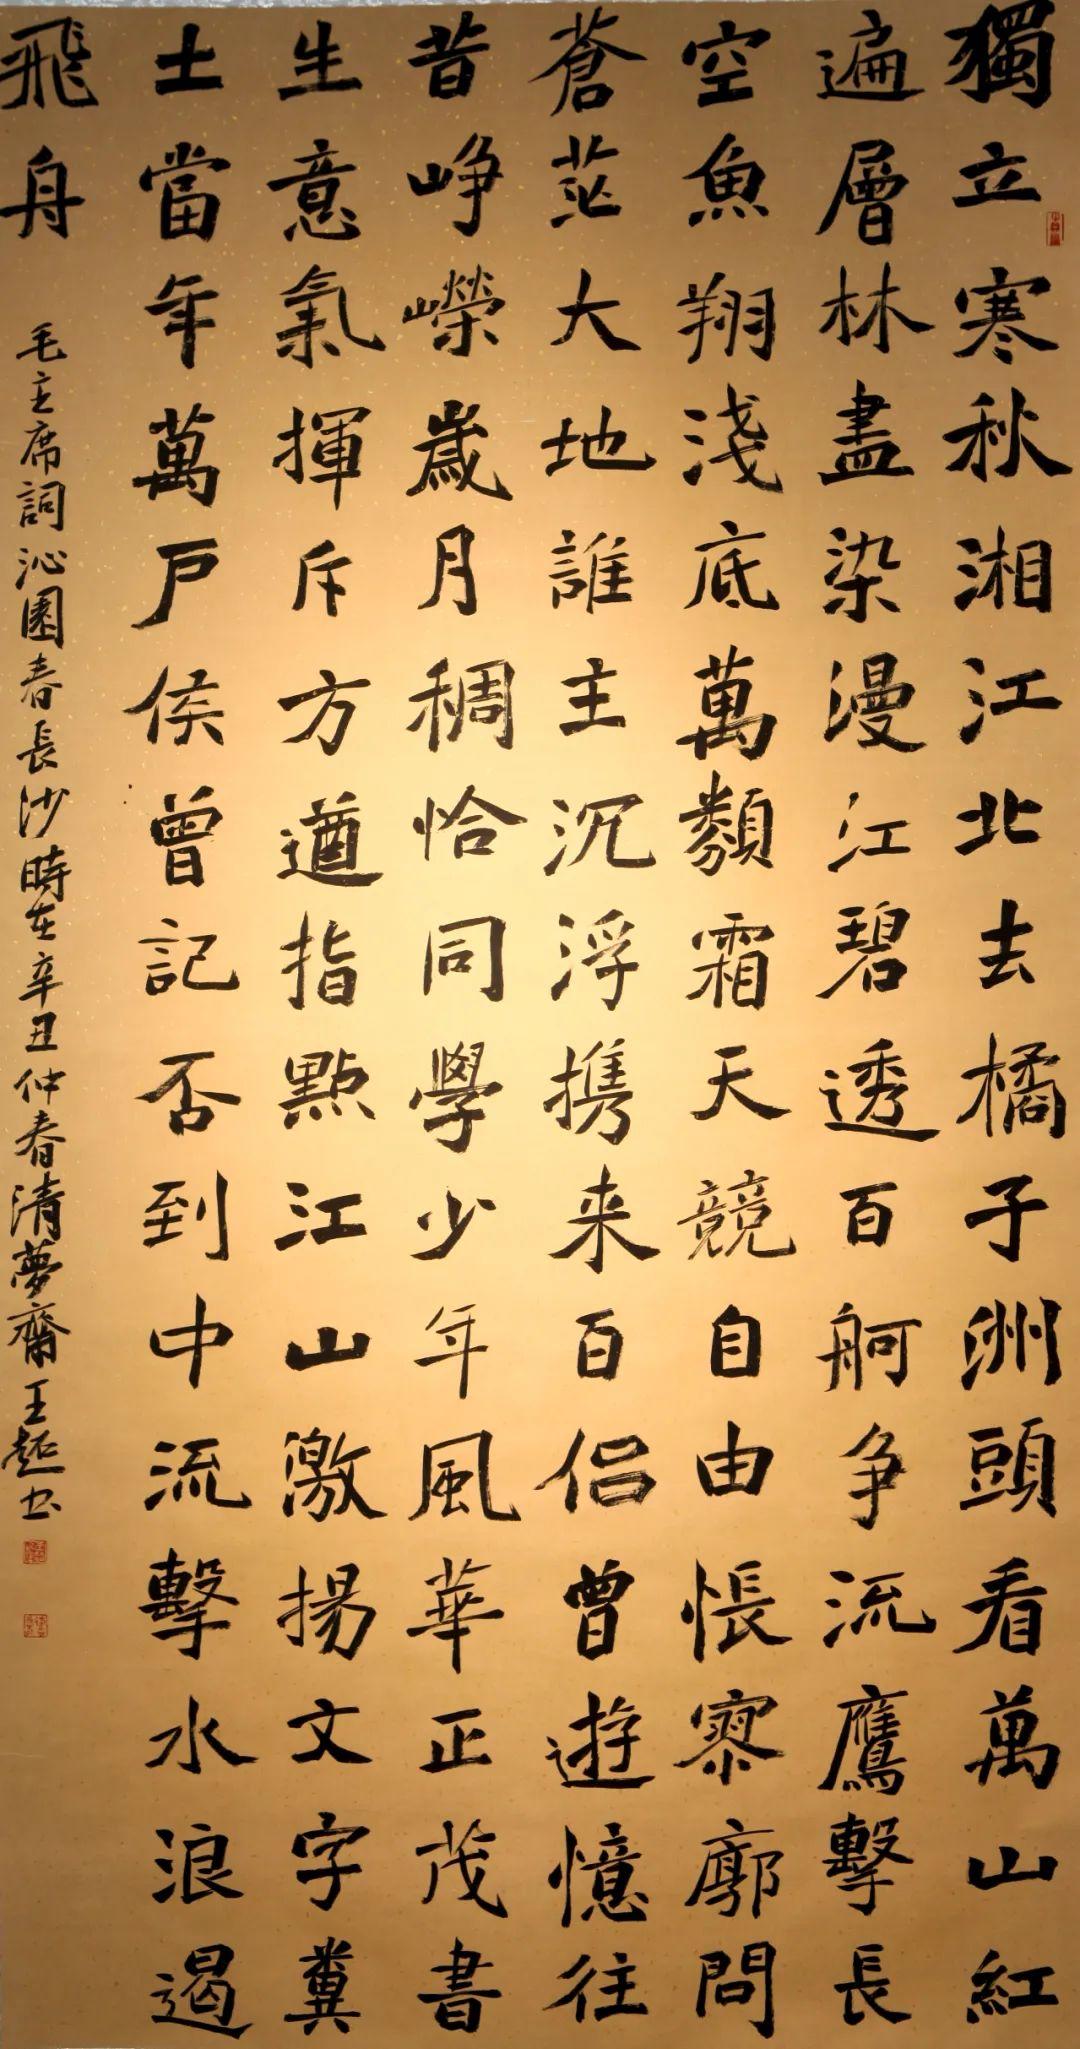 獨立寒秋湘江北去橘子洲頭看萬山紅
遍層林盡染漫江碧透百舸争流鷹擊長
空魚翔淺底萬類霜天競自由悵寥廓問
蒼茫大地誰主沉浮携来百侣曾遊憶往
昔峥嶸歲月稠恰同學少年風華正茂書
生意氣揮斥方遒指點江山激揚文字糞
土當年萬户侯曾記否到中流擊水浪遏
飛舟
毛主席詞沁園春長沙時在辛丑仲春清夢齋王超书